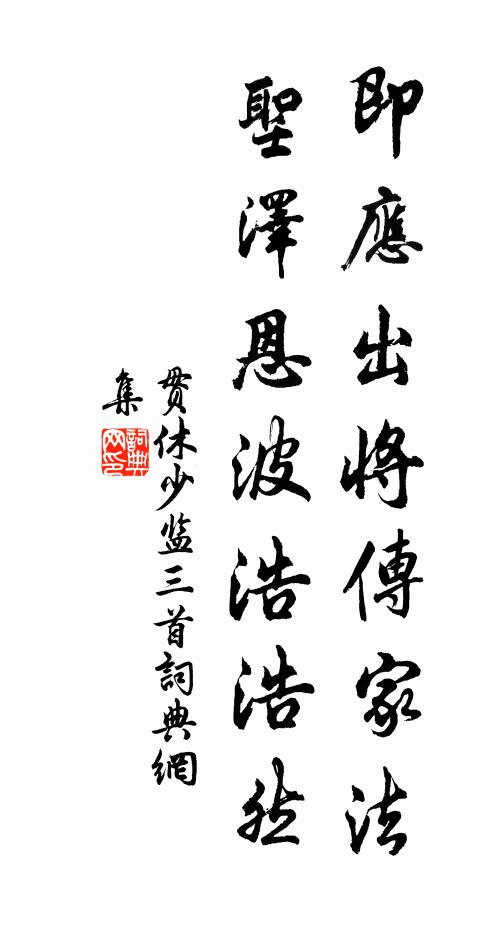 即應出將傳家法
聖澤恩波浩浩然
貫休少監三首詞典網
集
詞典網印